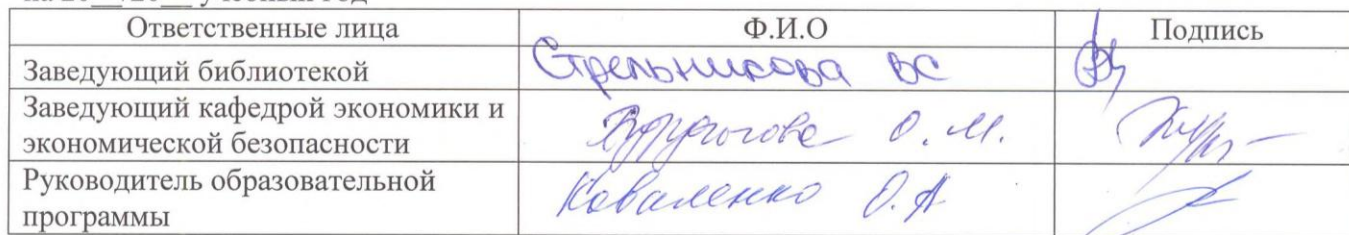 Ответственные лица Ф.И.О Подпись
Заведующий библиотекой Стрельникова ВС
Заведующий кафедрой экономики и
экономической безопасности О.М.
Руководитель образовательной
программы Коваленко О.А